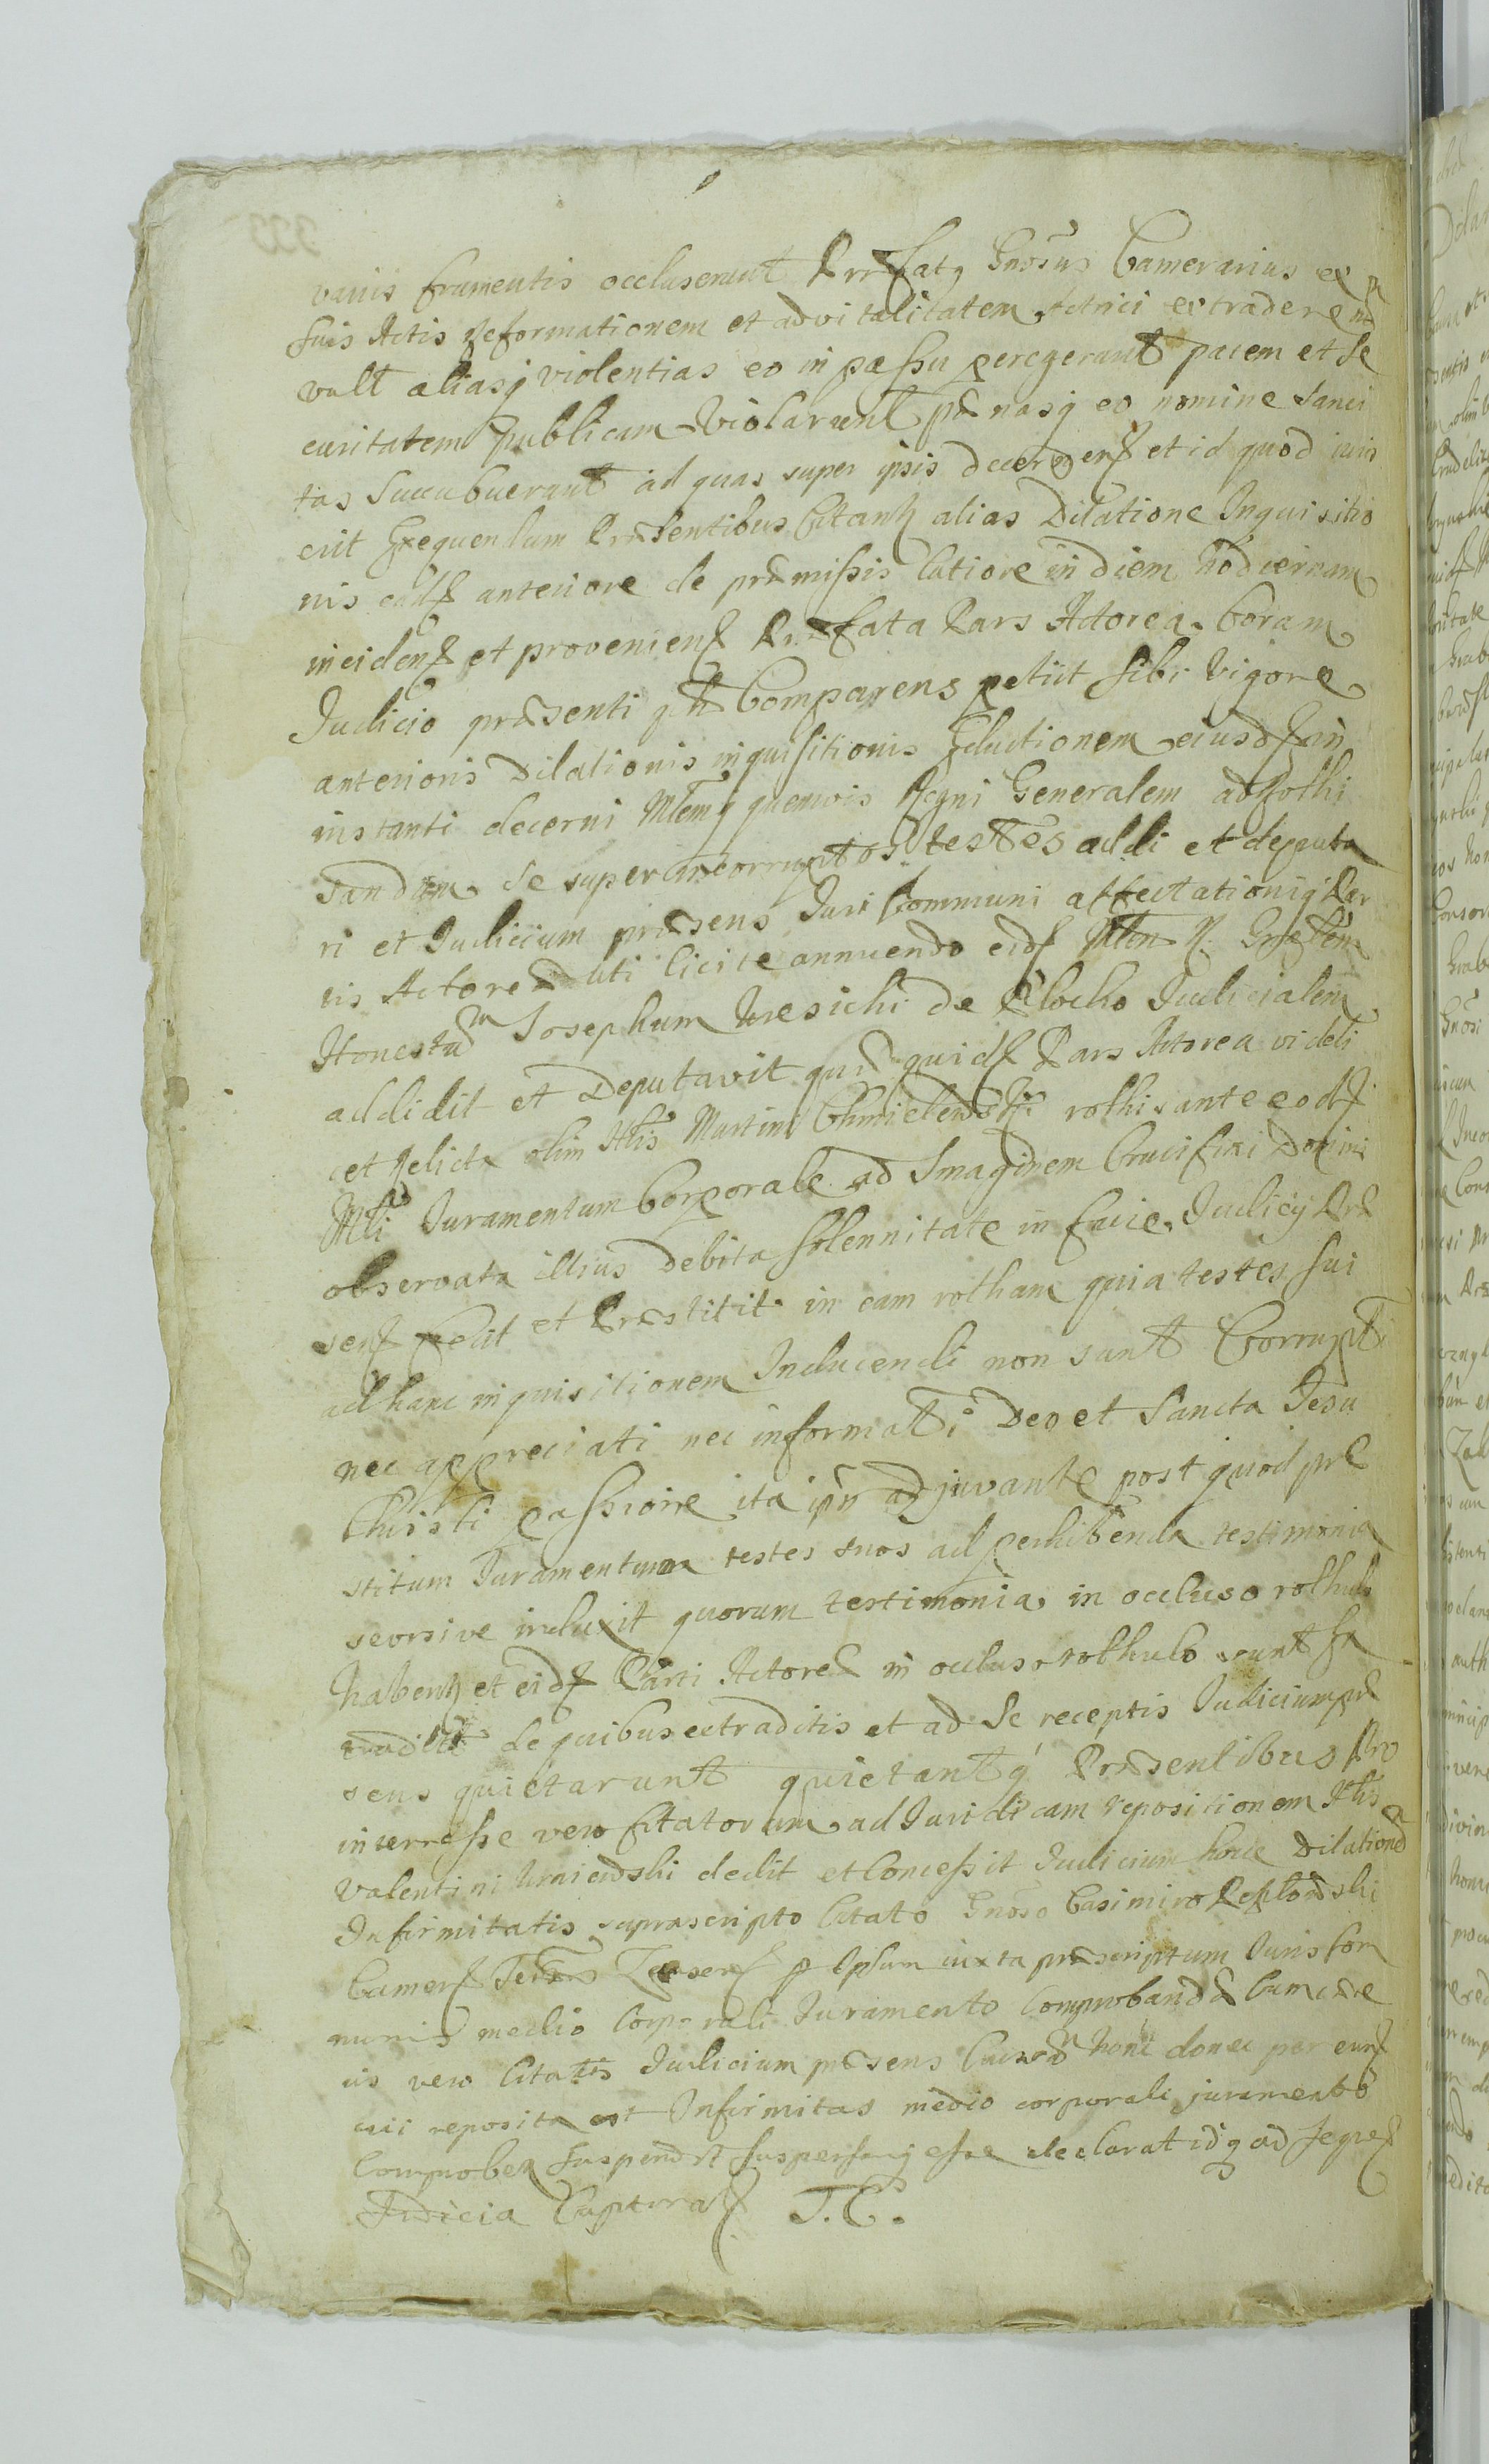 variis frumentis occluserunt Præfatq Gnosus Camerarius ex
suis Actis Reformationem et advitalitatem Actrici extradere n
vult aliasq violentias eo in passu peregerunt pacem et se
curitatem publicam violarunt pænasq eo nomine sanci
tas succubuerunt ad quas super ipsis decernen et id quod iuris
erit Exequendum Præsentibus Citantq alias Dilatione Inquisitio
nis ead anteriore de præmissis latiore in diem hodiernam
inciden et provenien Præfata Pars Actorea Coram
Judicio præsenti Comparens petiit sibi vigore
anterioris Dilationis inquisitionis Eductionem eiusd in
instanti decerni Mlemq quemvis Regni Generalem ad rothi
sandum se super incorruptos testes addi et deputa
ri et Judicium præsens Juri Communi affectationiq Par
tis Actoreæ uti licite annuendo eid Mlem R. Gnalem
Honestum Josephum de Plocko Judicialem
addidit et Deputavit quæ quid Pars Actorea videli
cet Relicta olim Martini Chmielewski rothisante eod
Mli Juramentum Corporale ad Imaginem Crucifixi Domini
observata illius debita solennitate in facie Judicij Præ
sen fecit et Præstitit in eam rotham quia testes sui
ad hanc inquisitionem Inducendi non sunt Corrupti
nec appreciati nec informati Deo et Sancta Jesu
Christi passione ita adjuvante post quod præ
stitum Juramentum testes suos ad perhibenda testimonia
seorsive induxit quorum testimonia in occluso rothulo
habentq et eid Parti Actoreæ in occluso rothulo sunt
tradita de quibus extraditis et ad se receptis Judicium præ
sens quietarunt quietantq Præsentibus Pro
interresse vero Citatorum ad Juridicam repositionem
Valentini dedit et Concessit Judicium hocce Dilationem
Infirmitatis suprascripto Citato Gnoso Casimiro
Camer p Ipsum iuxta præscriptum Juris com
munis medio Corporali Juramento Comprobandæ
is vero Citatis Judicium præsens Causam hanc donec per eum
cui reposita est Infirmitas medio corporali juramento
Comprobet suspendit suspensamq esse declarat idq ad seque
Judicia Captural T.C.